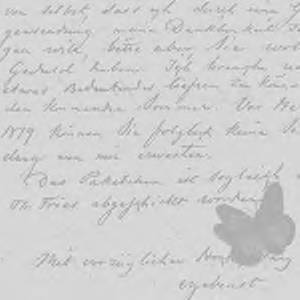 von selbst, dass ich durch eine
gensendung meine Dankbarkeit
gen will, bitte aber Sie
Geduld haben. Ich brauche
etwas Bedeutendes liefern zu
den kommenden Sommer. Vor
1879 können Sie folglich keine
dung von mir erwarten.
Das Paketchen ist sogleich
Th. Fries abgeschickt worden.
Mit vorzüglicher
ergebenst